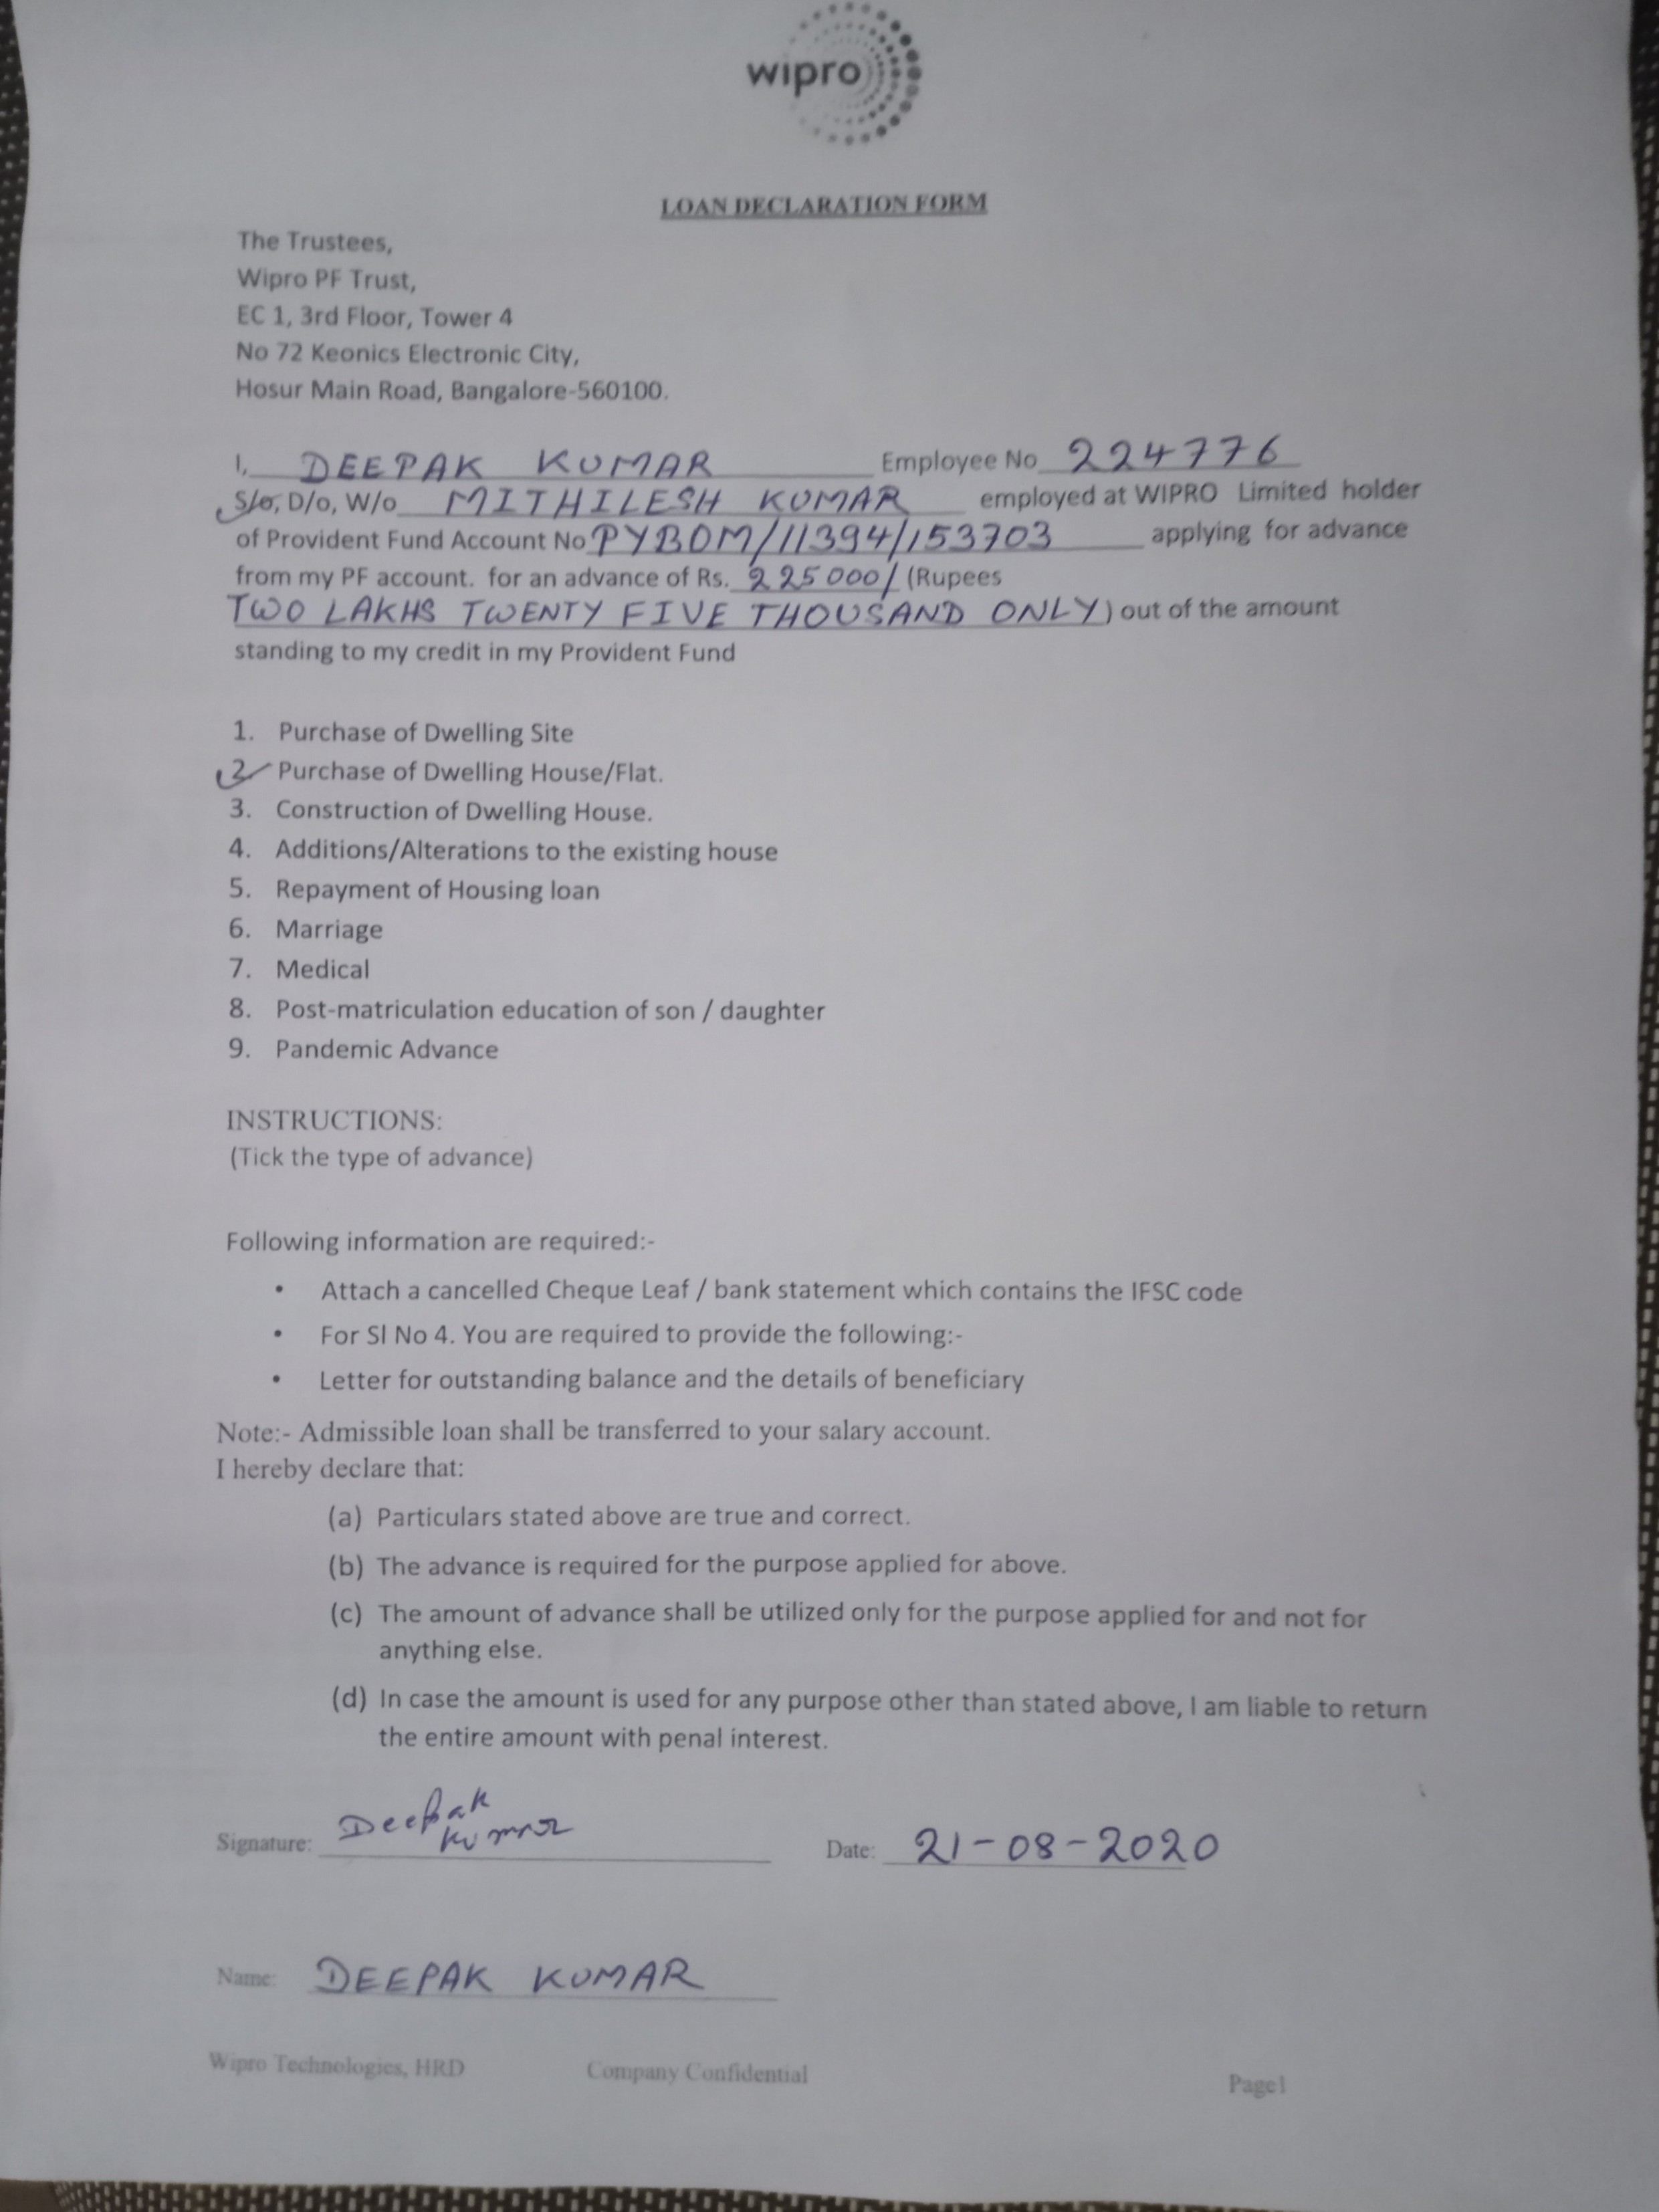 wipro
LOAN DECLARATION FORM
The Trustees,
Wipro PF Trust,
EC 1, 3rd Floor, Tower 4
No 72 Keonics Electronic City,
Hosur Main Road, Bangalore-560100.
I, DEEPAK KUMAR Employee No 224776
S/o, D/o, W/o MITHILESH KUMAR employed at WIPRO Limited holder
of Provident Fund Account No PYBOM/11394/153703 applying for advance
from my PF account. for an advance of Rs. 225000/ (Rupees
TWO LAKHS TWENTY FIVE THOUSAND ONLY) out of the amount
standing to my credit in my Provident Fund
1. Purchase of Dwelling Site
2 Purchase of Dwelling House/Flat.
3. Construction of Dwelling House.
4. Additions/Alterations to the existing house
5. Repayment of Housing loan
6. Marriage
7. Medical
8. Post-matriculation education of son / daughter
9. Pandemic Advance
INSTRUCTIONS:
(Tick the type of advance)
Following information are required:-
• Attach a cancelled Cheque Leaf / bank statement which contains the IFSC code
• For Sl No 4. You are required to provide the following:-
• Letter for outstanding balance and the details of beneficiary
Note:- Admissible loan shall be transferred to your salary account.
I hereby declare that:
(a) Particulars stated above are true and correct.
(b) The advance is required for the purpose applied for above.
(c) The amount of advance shall be utilized only for the purpose applied for and not for
anything else.
(d) In case the amount is used for any purpose other than stated above, I am liable to return
the entire amount with penal interest.
Signature: Deepak Kumar Date: 21-08-2020
Name: DEEPAK KUMAR
Wipro Technologies, HRD Company Confidential Page1